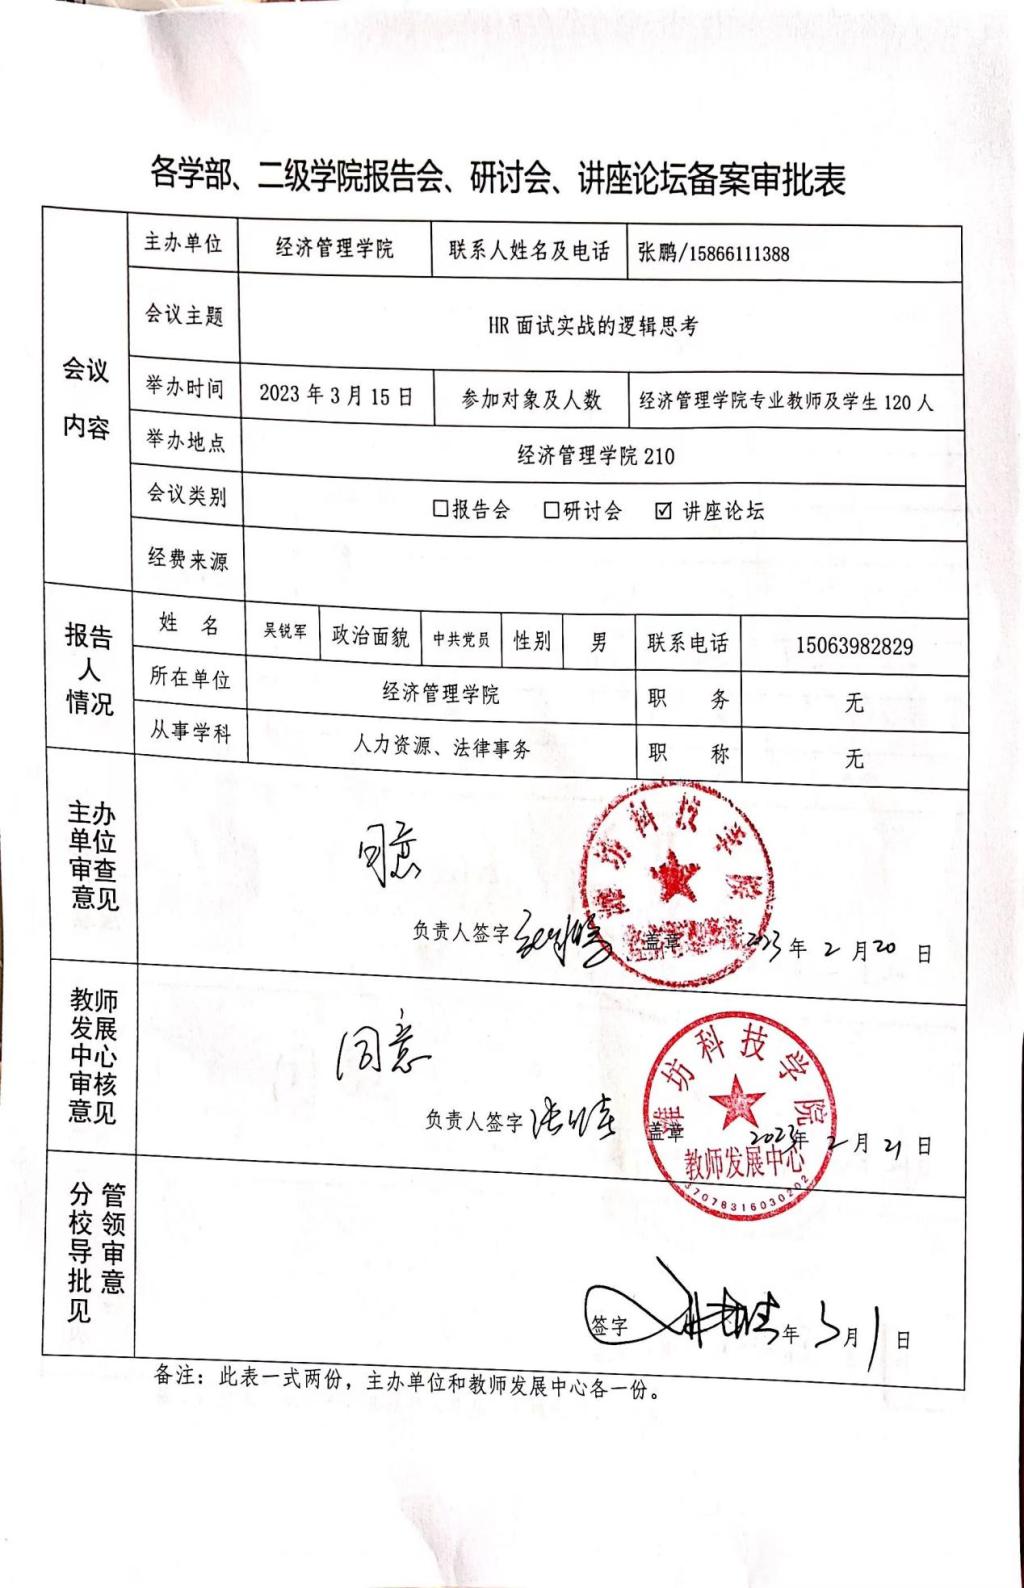 各学部、二级学院报告会、研讨会、讲座论坛备案审批表
会议内容
主办单位 经济管理学院 联系人姓名及电话 张鹏/15866111388
会议主题 HR面试实战的逻辑思考
举办时间 2023年3月15日 参加对象及人数 经济管理学院专业教师及学生120人
举办地点 经济管理学院210
会议类别 □报告会 □研讨会 ☑讲座论坛
经费来源
报告人情况
姓 名 吴锐军 政治面貌 中共党员 性别 男 联系电话 15063982829
所在单位 经济管理学院 职 务 无
从事学科 人力资源、法律事务 职 称 无
主办单位审查意见
同意
潍坊科技学院
负责人签字 盖章 2023年2月20日
教师发展中心审核意见
同意
潍坊科技学院
负责人签字 盖章 2023年2月21日
教师发展中心
37078316030202
分管校领导审批意见
签字 年3月1日
备注：此表一式两份，主办单位和教师发展中心各一份。